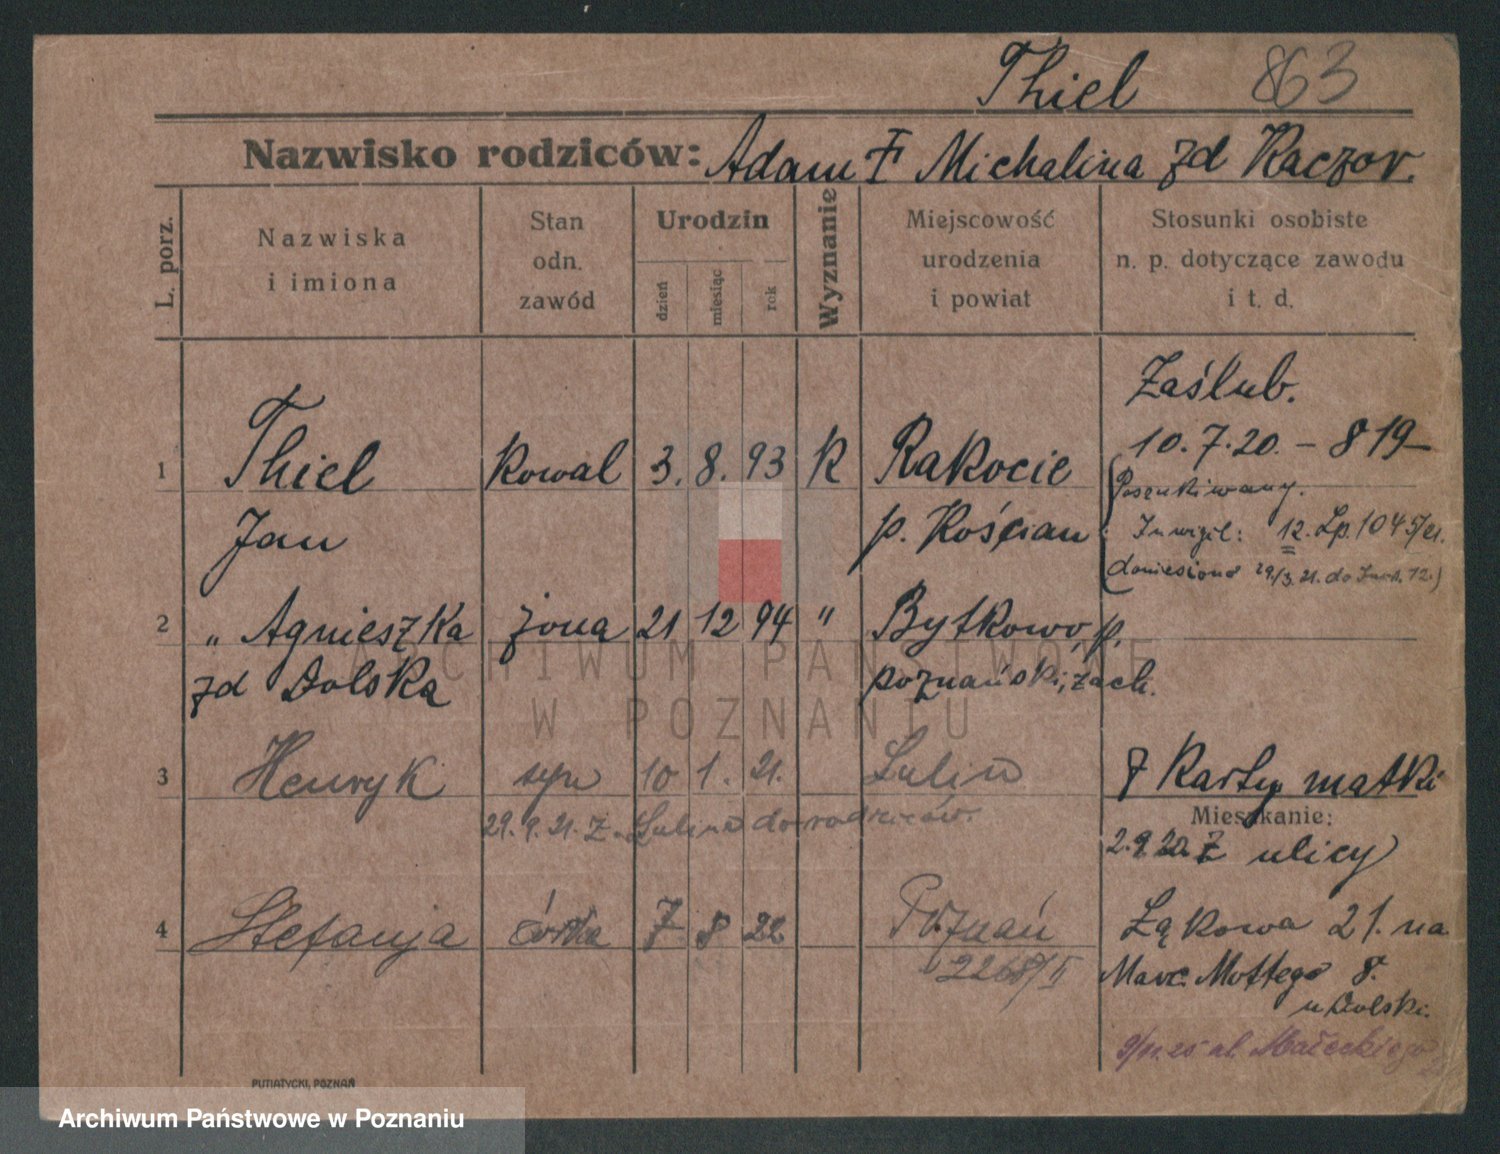 Thiel 863
Nazwisko rodziców: Adam F Michalina zd Kaczor.
L. porz.
Nazwiska
i imiona
Stan
odn.
zawód
Urodzin
dzień
miesiąc
rok
Wyznanie
Miejscowość
urodzenia
i powiat
Stosunki osobiste
n. p. dotyczące zawodu
i t. d.
Zaślub.
10.7.20. – 819
1 Thiel kowal 3. 8. 93 k Rakocie
Jan p. Kościan
(Poszukiwany.
Inwigil: 12. Lp. 1045/21.
doniesiono 29/3. 21. do 12.)
2 " Agnieszka żona 21 12 94 " Bytkowo, p.
zd Dolska poznański, zach.
3 Henryk syn 10 1. 21. Lulin
29. 9. 21. z Lulina do rodziców.
z Karty matki
Mieszkanie:
2.9.20. z ulicy
4 Stefanja córka 7 8 22 Poznań
2268/II
Łąkowa 21. na
Marc. Mottego 8.
u Dolski.
9/11.25 ul. Małeckiego
PUTIATYCKI, POZNAŃ
ARCHIWUM PAŃSTWOWE
W POZNANIU
Archiwum Państwowe w Poznaniu